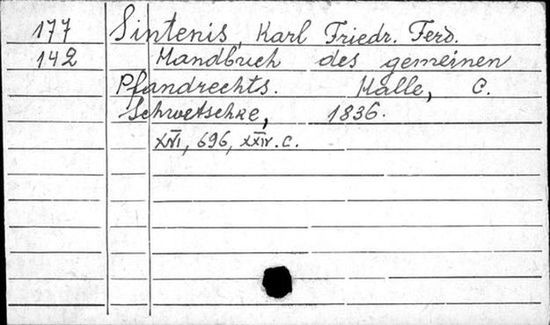 177 Sintenis, Karl Friedr. Ferd.
142 Handbuch des gemeinen
Pfandrechts. Halle, C.
Schwetschke, 1836.
XVI, 696, XXIV.c.